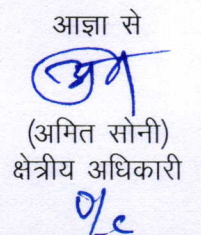 आज्ञा से
(अमित सोनी)
क्षेत्रीय अधिकारी